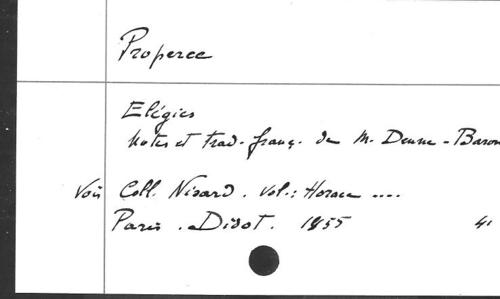 Properce
Elégies
Notes et trad. franç. de M. Denne-Baron
Voir Coll. Nisard. Vol.: Horace ....
Paris. Didot. 1855 4°